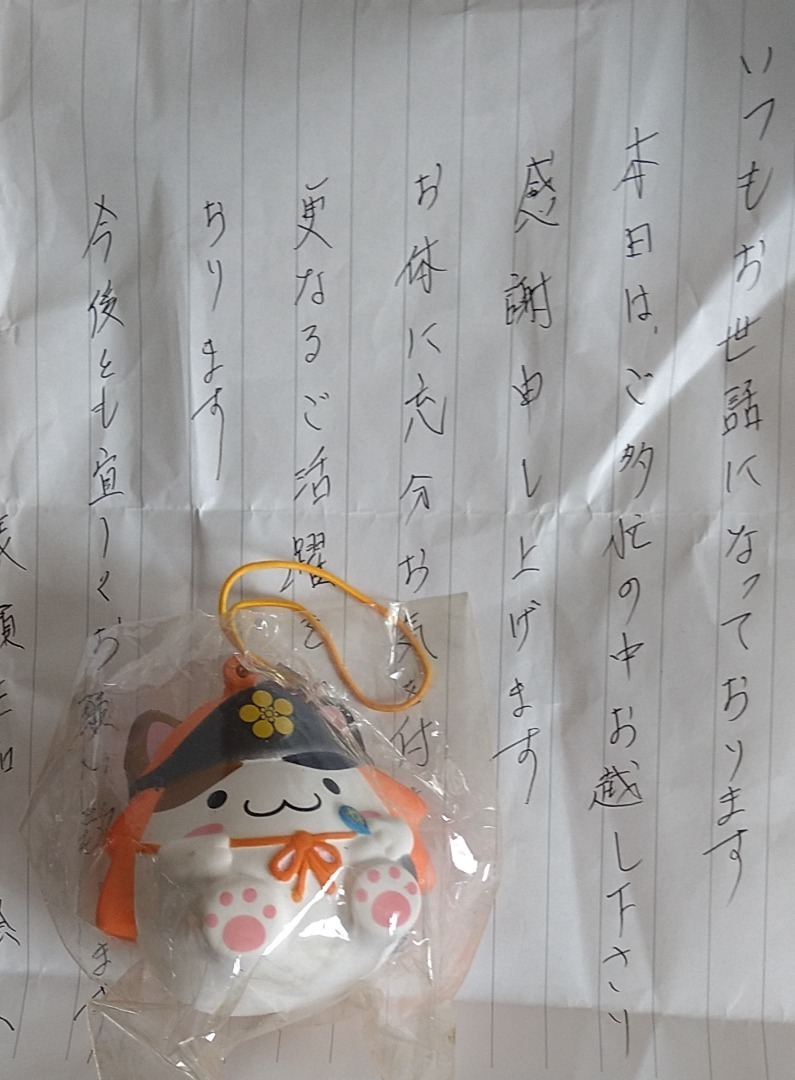 いつもお世話になっております
本日は、ご多忙の中お越し下さり
感謝申し上げます
お体に充分お気を付
更なるご活躍を
おります
今後とも宜しくお願い